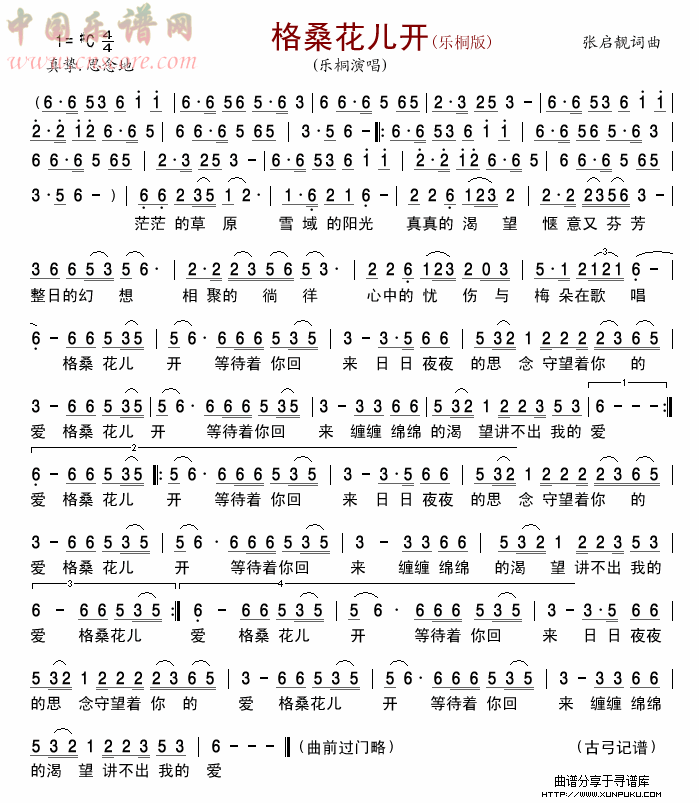 中国乐谱网
www.cnscore.com
1=♯C 4/4
格桑花儿开(乐桐版)
张启靓词曲
真挚.思念地
(乐桐演唱)
(6·6 53 6 i i | 6·6 65 56·3 | 6·6 6 5 65 | 2·3 25 3 - | 6·6 536 i i |
2·2 i2 6·6 5 | 6·6 6 5 65 | 3·5 6 - ‖: 6·6 536 i i | 6·6 65 5·6 3 |
6 6 6 5 65 | 2·3 25 3 - | 6·6 536 i i | 2·2 i2 6·6 5 | 6·6 6 5 65 |
3·5 6 - ) | 6 6 2 35 1 2· | 1·6 2 1 6 - | 2 2 6 123 2 | 2·2 2356 3 - |
茫茫 的草 原 雪 域 的阳光 真真的 渴 望 惬 意又 芬 芳
3 6 6 5 3 5 6· | 2·2 2 3 5 6 5 3· | 2 2 6 123 2 0 3 | 5·1 2121 6 - |
3
整日的幻 想 相 聚的 徜 徉 心中的 忧 伤 与 梅 朵在歌 唱
6 - 6 6 5 35 | 5 6· 6 6 6 5 3 5 | 3 - 3·5 6 6 | 5 32 1 2 2 2 3 6 5 |
格桑 花儿 开 等待着 你回 来 日 日 夜夜 的思 念 守望着你 的
3 - 6 6 5 35 | 5 6· 6 6 6 5 35 | 3 - 3 3 6 6 | 5 32 1 2 2 3 5 3 | 6 - - - :‖
1
爱 格桑 花儿 开 等待着你回 来 缠缠 绵绵 的渴 望讲不出 我的 爱
2
6 - 6 6 5 3 5 ‖: 5 6· 6 6 6 5 3 5 | 3 - 3·5 6 6 | 5 32 1 2 2 2 3 6 5 |
爱 格桑 花儿 开 等待着 你回 来 日 日 夜夜 的思 念 守望着你 的
3 - 6 6 5 3 5 | 5 6· 6 6 6 5 3 5 | 3 - 3 3 6 6 | 5 3 2 1 2 2 3 5 3 |
爱 格桑 花儿 开 等待着 你回 来 缠缠 绵绵 的渴 望 讲不出 我的
3
4
6 - 6 6 5 3 5 :‖ 6 - 6 6 5 3 5 | 5 6· 6 6 6 5 3 5 | 3 - 3·5 6 6 |
爱 格桑花儿 爱 格桑 花儿 开 等待着 你回 来 日 日 夜夜
5 32 1 2 2 2 3 6 5 | 3 - 6 6 5 3 5 | 5 6· 6 6 6 5 3 5 | 3 - 3 3 6 6 |
的思 念守望着 你 的 爱 格桑花儿 开 等待着 你回 来 缠缠 绵绵
5 3 2 1 2 2 3 5 3 | 6 - - - ‖ (曲前过门略) (古弓记谱)
的渴 望 讲不出 我的 爱
曲谱分享于寻谱库
HTTP://WWW.XUNPUKU.COM